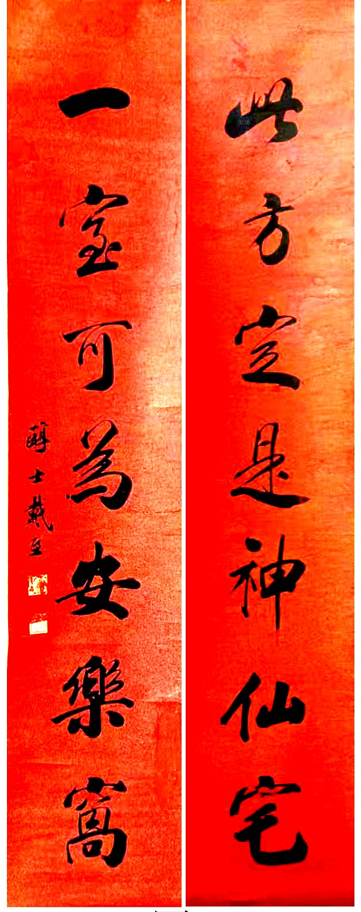 此方定是神仙宅
一室可為安樂窩
醇士戴熙